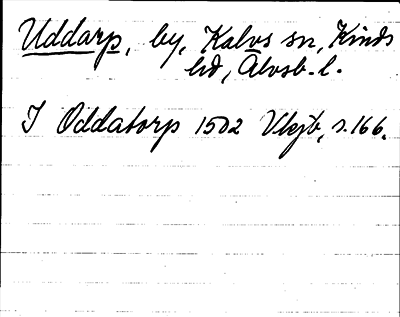 Uddarp, by, Kalvs sn, Kinds
hd, Älvsb. l.
I Oddatorp 1502 Vkjb, s. 166.